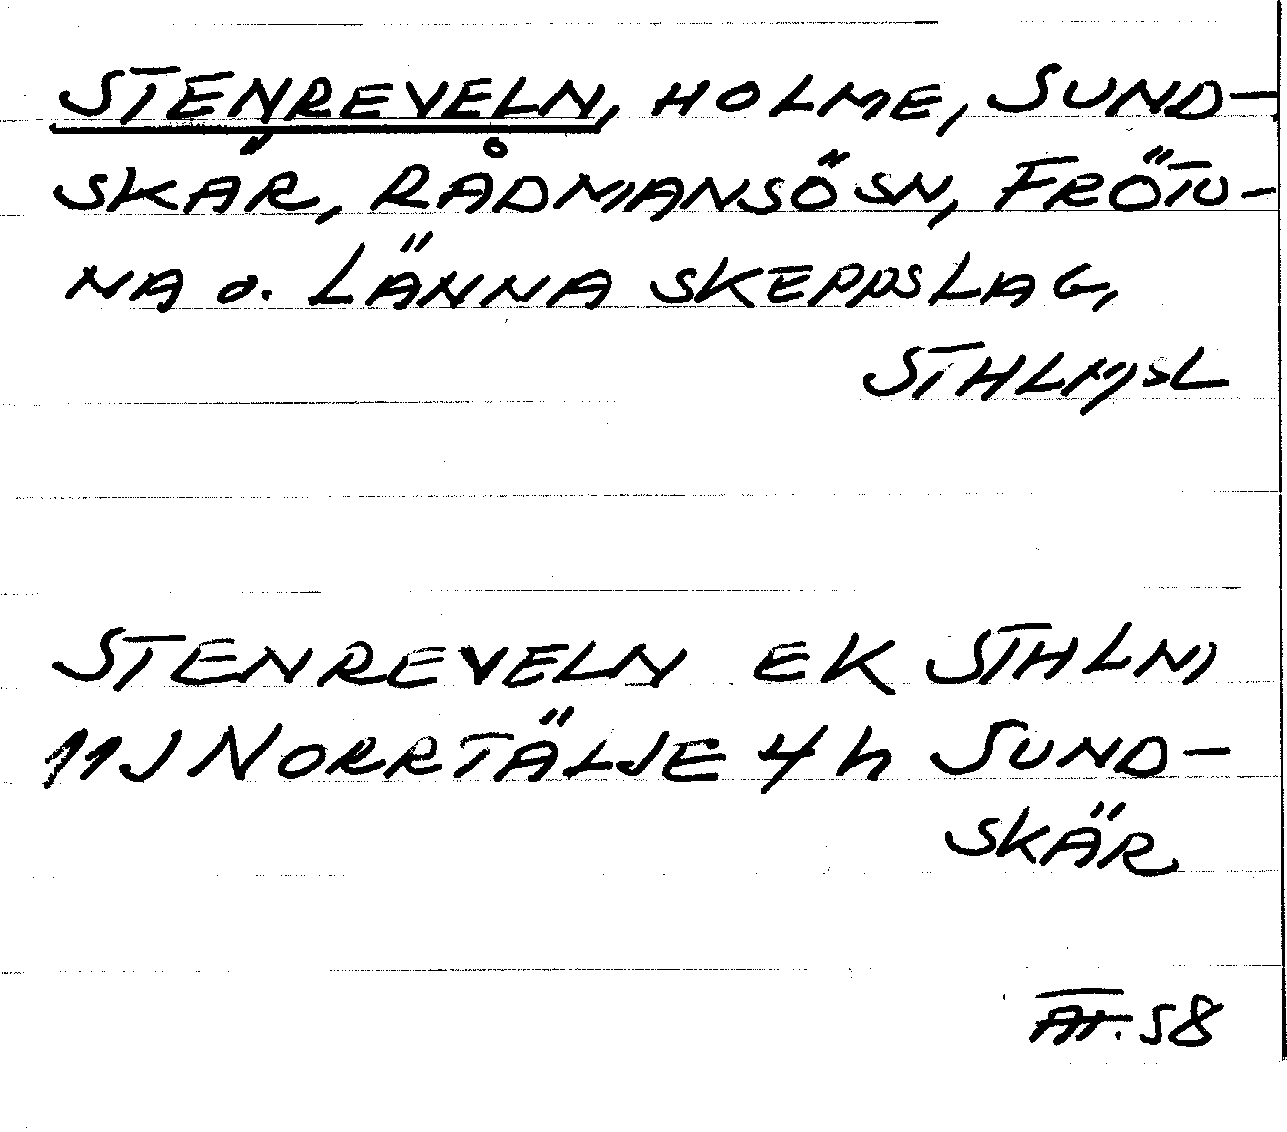 STENREVELN, HOLME, SUND-
SKÄR, RÅDMANSÖ SN, FRÖTU-
NA o. LÄNNA SKEPPSLAG,
STHLMSL
STENREVELN EK STHLM
11J NORRTÄLJE 4h SUND-
SKÄR
58